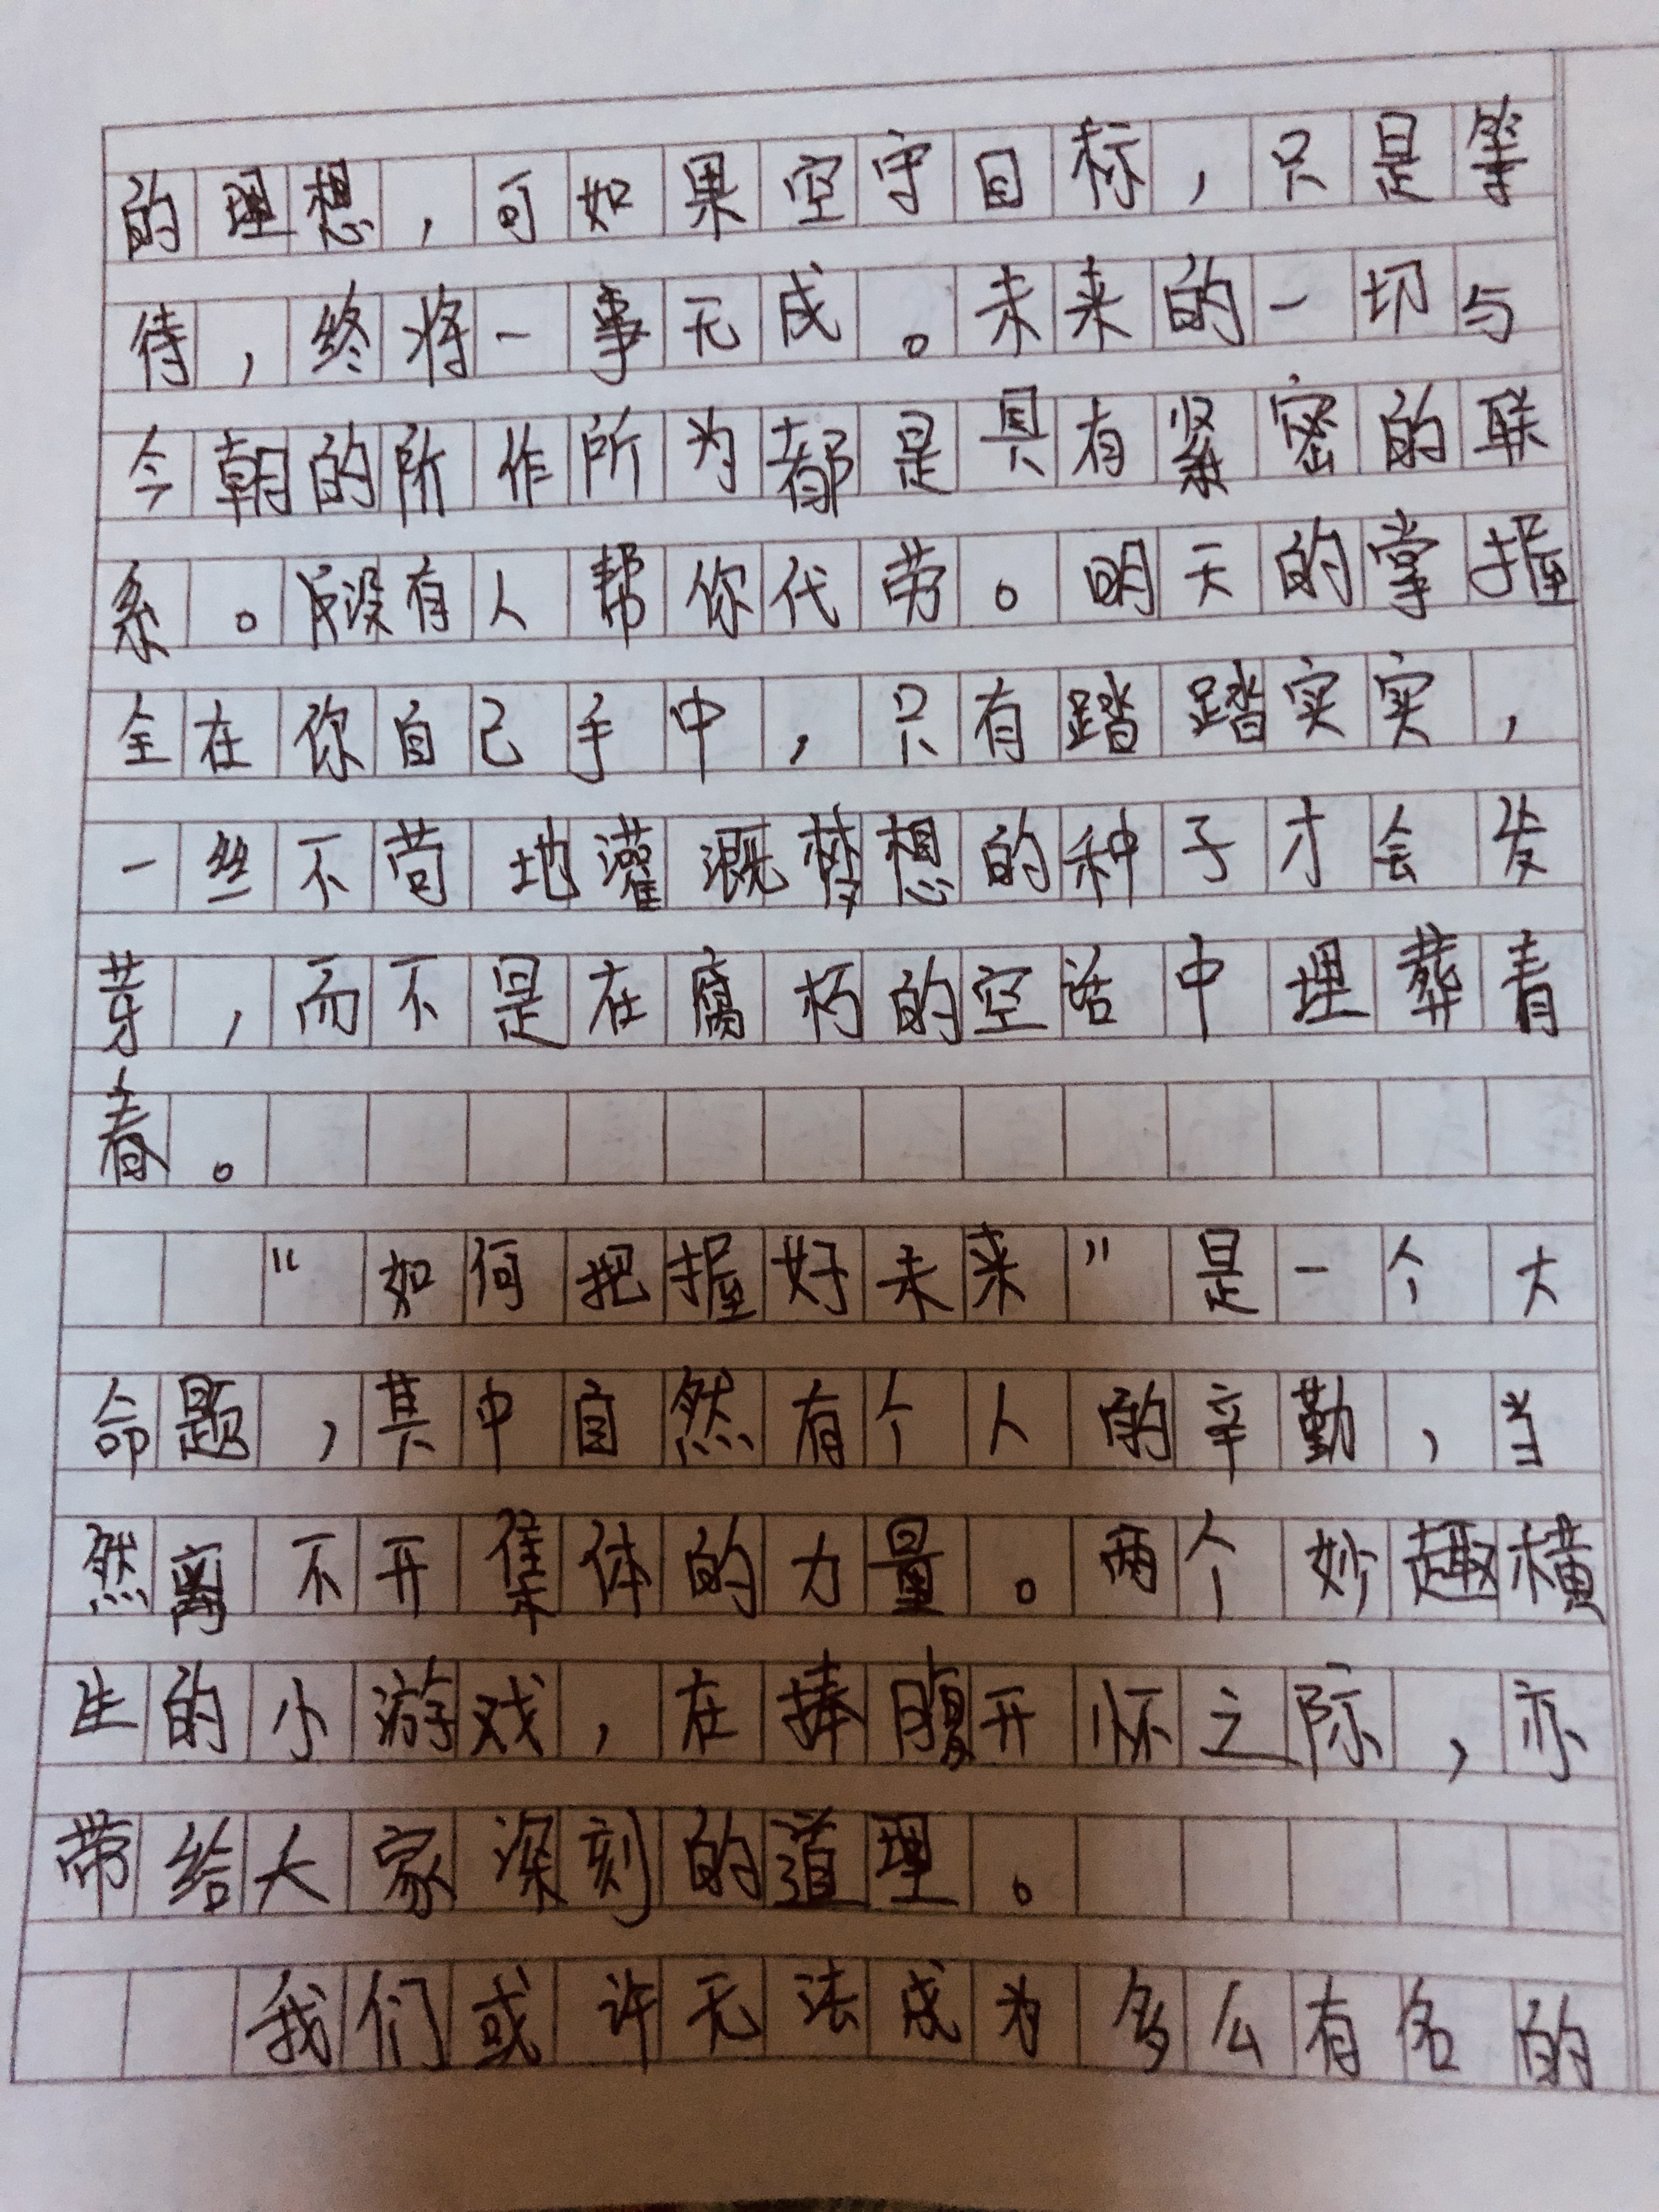 的理想，可如果空守目标，只是等
待，终将一事无成。未来的一切与
今朝的所作所为都是具有紧密的联
系。没有人帮你代劳。明天的掌握
全在你自己手中，只有踏踏实实，
一丝不苟地灌溉梦想的种子才会发
芽，而不是在腐朽的空话中埋葬青
春。
“如何把握好未来”是一个大
命题，其中自然有个人的辛勤，当
然离不开集体的力量。两个妙趣横
生的小游戏，在捧腹开怀之际，亦
带给大家深刻的道理。
我们或许无法成为多么有名的